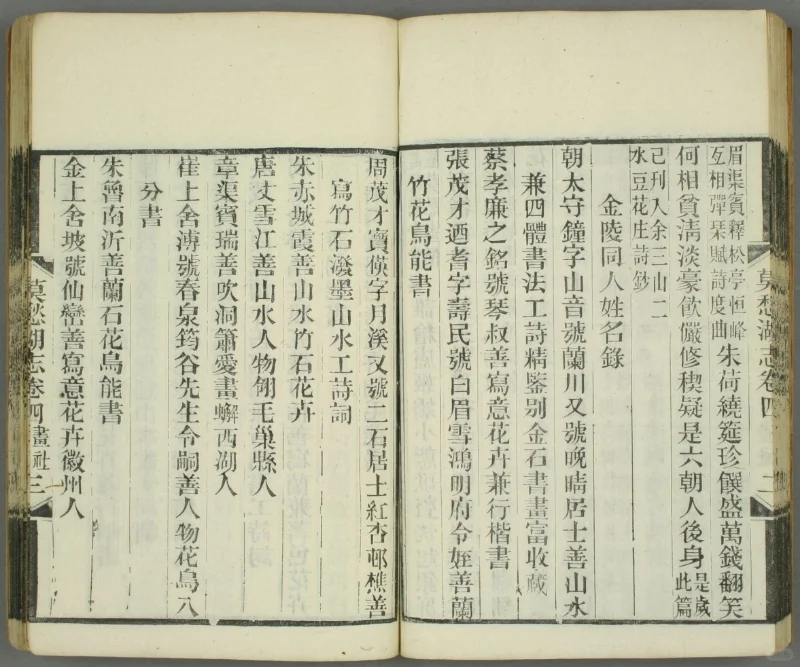 眉渠賓釋松亭恒峰
互相彈琹賦詩度曲
朱荷繞筵珍饌盛萬錢翻笑
何相貧淸淡豪飮儼修稧疑是六朝人後身
是歲
此篇
己刋入余三山二
水豆花庄詩鈔
金陵同人姓名錄
朝太守鐘字山音號蘭川又號晩晴居士善山水
兼四體書法工詩精鑒别金石書畫富收藏
蔡孝廉之銘號琴叔善寫意花卉兼行楷書
張茂才迺耆字壽民號白眉雪鴻明府令姪善蘭
竹花鳥能書
莫愁湖志卷四
二
周茂才寶偀字月溪又號二石居士紅杏邨樵善
寫竹石潑墨山水工詩詞
朱赤城霞善山水竹石花卉
唐丈雪江善山水人物翎毛巢縣人
章渠賓瑞善吹洞簫愛畫蠏西湖人
崔上舍溥號春泉筠谷先生令嗣善人物花鳥八
分書
朱魯南沂善蘭石花鳥能書
金上舍坡號仙巒善寫意花卉徽州人
莫愁湖志卷四畫社
三